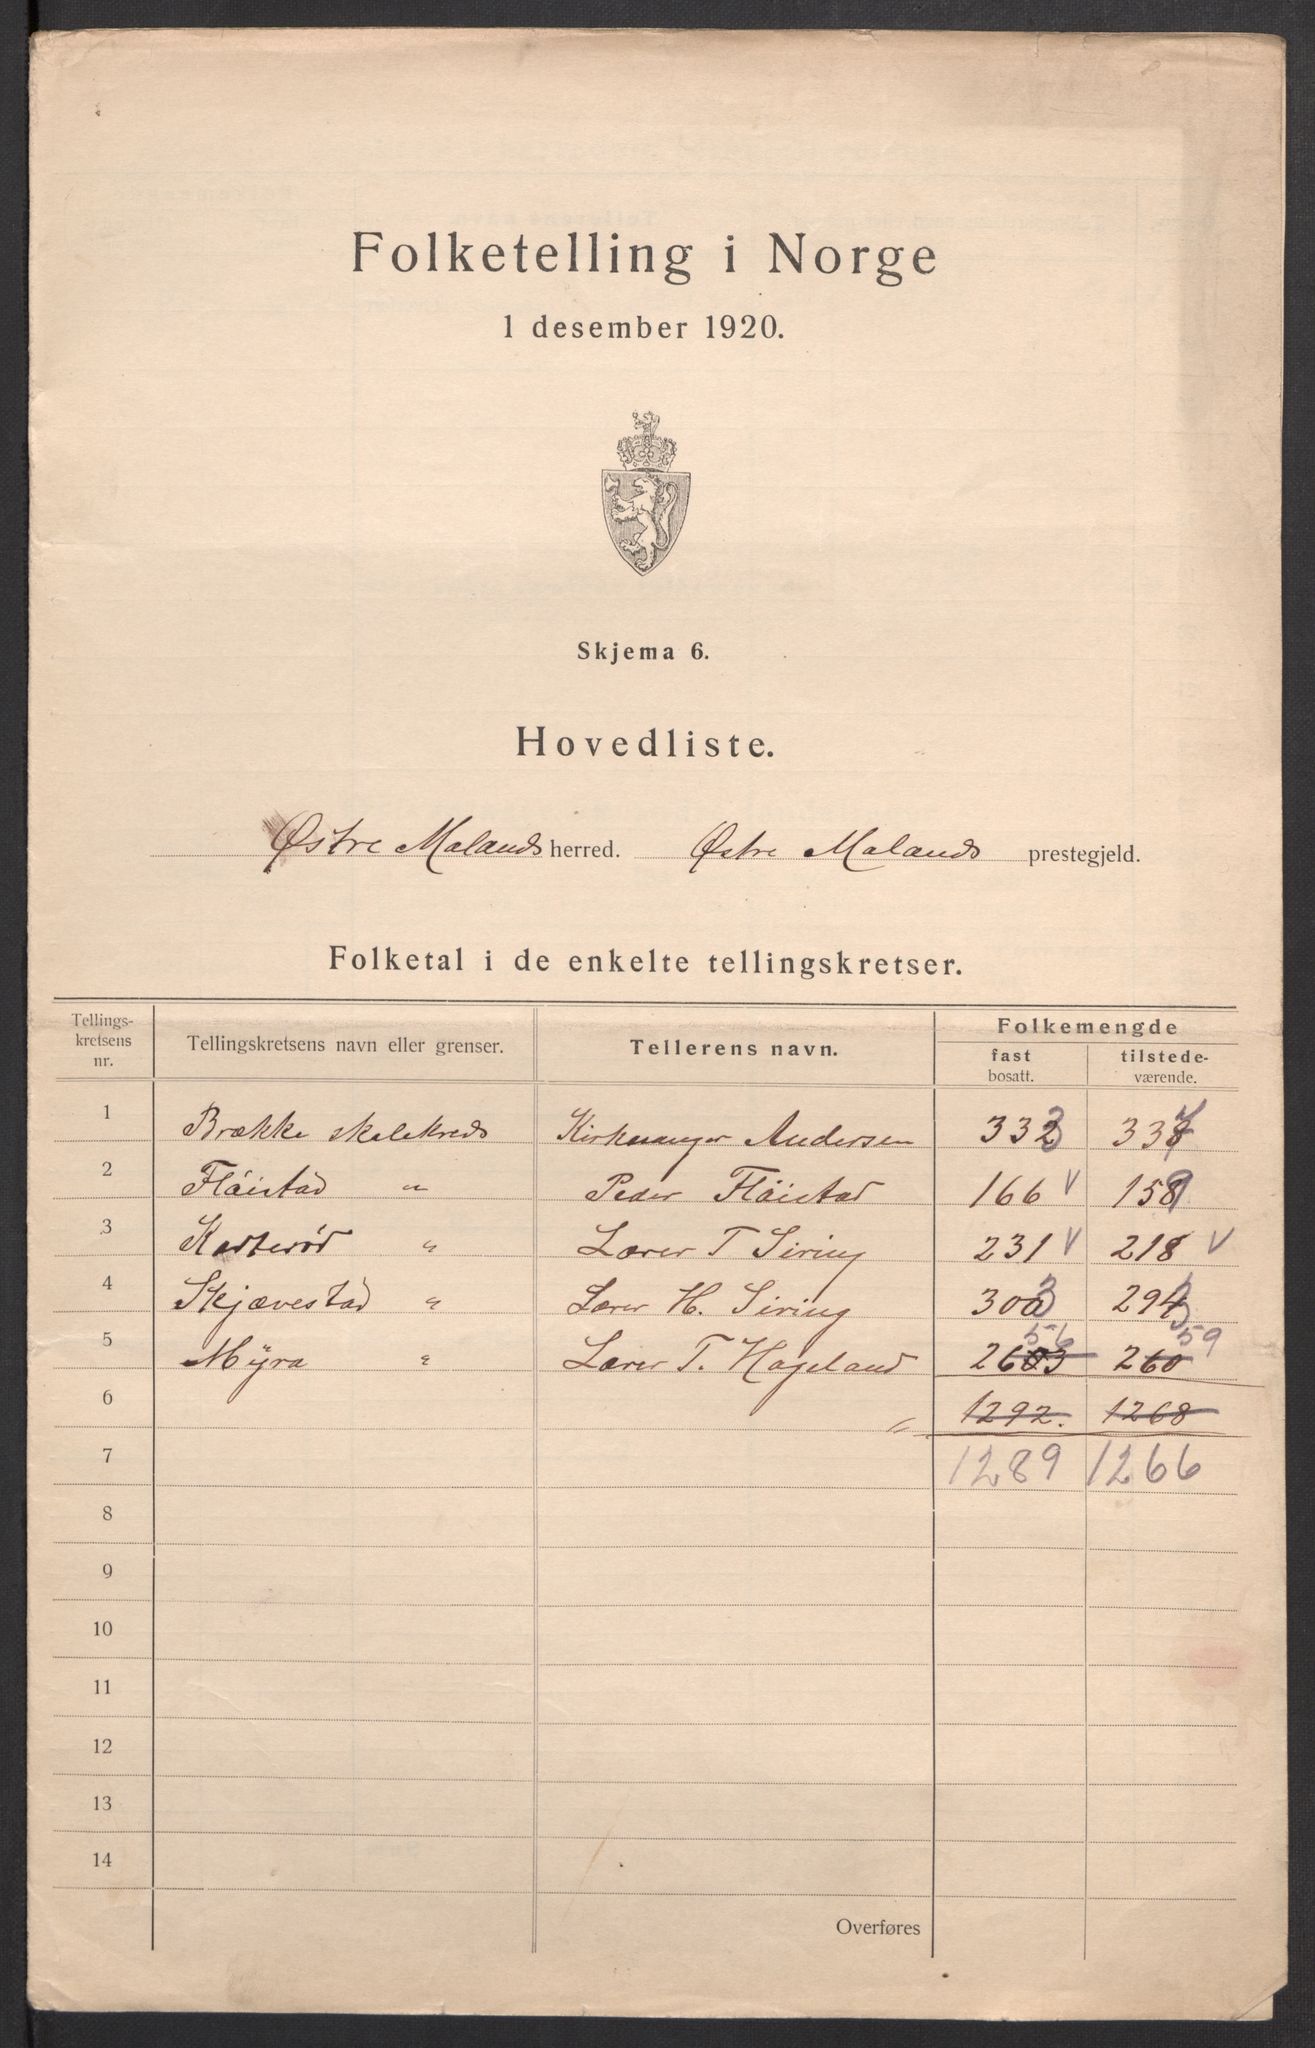 Folketelling i Norge
1 desember 1920.
Skjema 6.
Hovedliste.
Østre Molands herred. Østre Molands prestegjeld.
Folketal i de enkelte tellingskretser.
Tellings-kretsens nr. Tellingskretsens navn eller grenser. Tellerens navn. Folkemengde
fast bosatt. tilstede-værende.
1 Brække skolekreds Kirkesanger Andersen 333 337
2 Fløistad " Peder Fløistad 166 V 159
3 " Lærer T Siring 231 V 218 V
4 Skjævestad " Lærer H. Siring 303 293
56 59
5 Myra " Lærer T. Hageland 2603 260
6 " 1292. 1268
7 1289 1266
8
9
10
11
12
13
14
Overføres